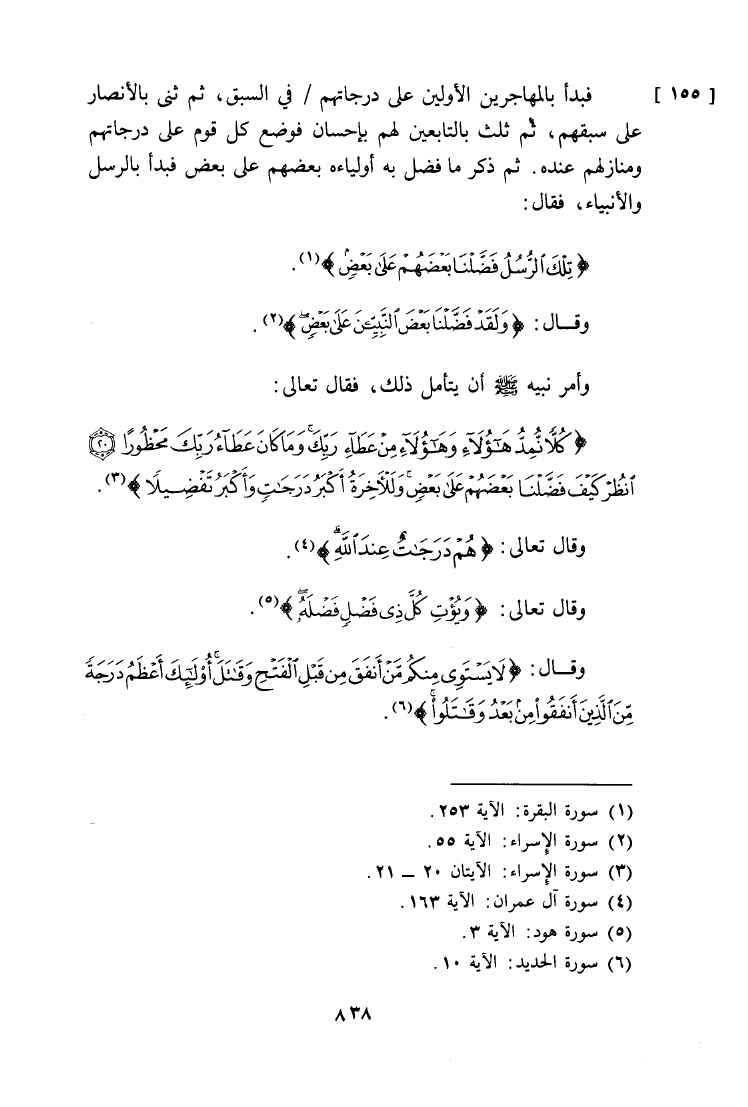 [ ١٥٥ ] فبدأ بالمهاجرين الأولين على درجاتهم / في السبق، ثم ثنى بالأنصار
على سبقهم، ثم ثلث بالتابعين لهم بإحسان فوضع كل قوم على درجاتهم
ومنازلهم عنده. ثم ذكر ما فضل به أولياءه بعضهم على بعض فبدأ بالرسل
والأنبياء، فقال:
﴿ تِلْكَ ٱلرُّسُلُ فَضَّلْنَا بَعْضَهُمْ عَلَىٰ بَعْضٍ ﴾(١).
وقـال: ﴿ وَلَقَدْ فَضَّلْنَا بَعْضَ ٱلنَّبِيِّـۧنَ عَلَىٰ بَعْضٍ ﴾(٢).
وأمر نبيه ﷺ أن يتأمل ذلك، فقال تعالى:
﴿ كُلًّا نُّمِدُّ هَـٰٓؤُلَآءِ وَهَـٰٓؤُلَآءِ مِنْ عَطَآءِ رَبِّكَ ۚ وَمَا كَانَ عَطَآءُ رَبِّكَ مَحْظُورًا ۝٢٠
ٱنظُرْ كَيْفَ فَضَّلْنَا بَعْضَهُمْ عَلَىٰ بَعْضٍ ۚ وَلَلْـَٔاخِرَةُ أَكْبَرُ دَرَجَـٰتٍ وَأَكْبَرُ تَفْضِيلًا ﴾(٣).
وقال تعالى: ﴿ هُمْ دَرَجَـٰتٌ عِندَ ٱللَّهِ ۗ ﴾(٤).
وقال تعالى: ﴿ وَيُؤْتِ كُلَّ ذِى فَضْلٍ فَضْلَهُۥ ۖ ﴾(٥).
وقـال: ﴿ لَا يَسْتَوِى مِنكُم مَّنْ أَنفَقَ مِن قَبْلِ ٱلْفَتْحِ وَقَـٰتَلَ ۚ أُو۟لَـٰٓئِكَ أَعْظَمُ دَرَجَةً
مِّنَ ٱلَّذِينَ أَنفَقُوا۟ مِنۢ بَعْدُ وَقَـٰتَلُوا۟ ۚ ﴾(٦).
(١) سورة البقرة: الآية ٢٥٣.
(٢) سورة الإسراء: الآية ٥٥.
(٣) سورة الإسراء: الآيتان ٢٠ ــ ٢١.
(٤) سورة آل عمران: الآية ١٦٣.
(٥) سورة هود: الآية ٣.
(٦) سورة الحديد: الآية ١٠.
٨٣٨